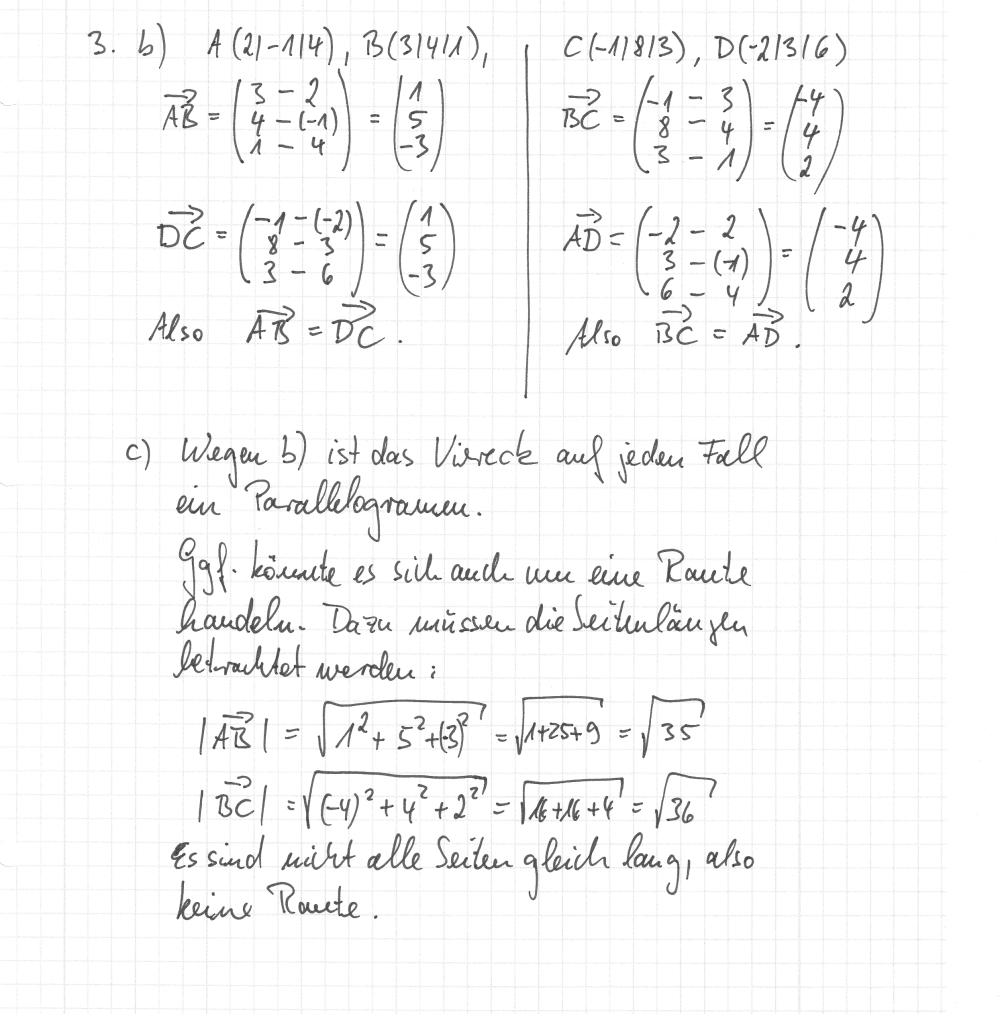 3. b) A(2|-1|4), B(3|4|1), C(-1|8|3), D(-2|3|6)
AB = (3 - 2, 4 - (-1), 1 - 4) = (1, 5, -3)
DC = (-1 - (-2), 8 - 3, 3 - 6) = (1, 5, -3)
Also AB = DC.
BC = (-1 - 3, 8 - 4, 3 - 1) = (-4, 4, 2)
AD = (-2 - 2, 3 - (-1), 6 - 4) = (-4, 4, 2)
Also BC = AD.
c) Wegen b) ist das Viereck auf jeden Fall
ein Parallelogramm.
Ggf. könnte es sich auch um eine Raute
handeln. Dazu müssen die Seitenlängen
betrachtet werden:
|AB| = √(1² + 5² + (-3)²) = √(1+25+9) = √35
|BC| = √((-4)² + 4² + 2²) = √(16+16+4) = √36
Es sind nicht alle Seiten gleich lang, also
keine Raute.